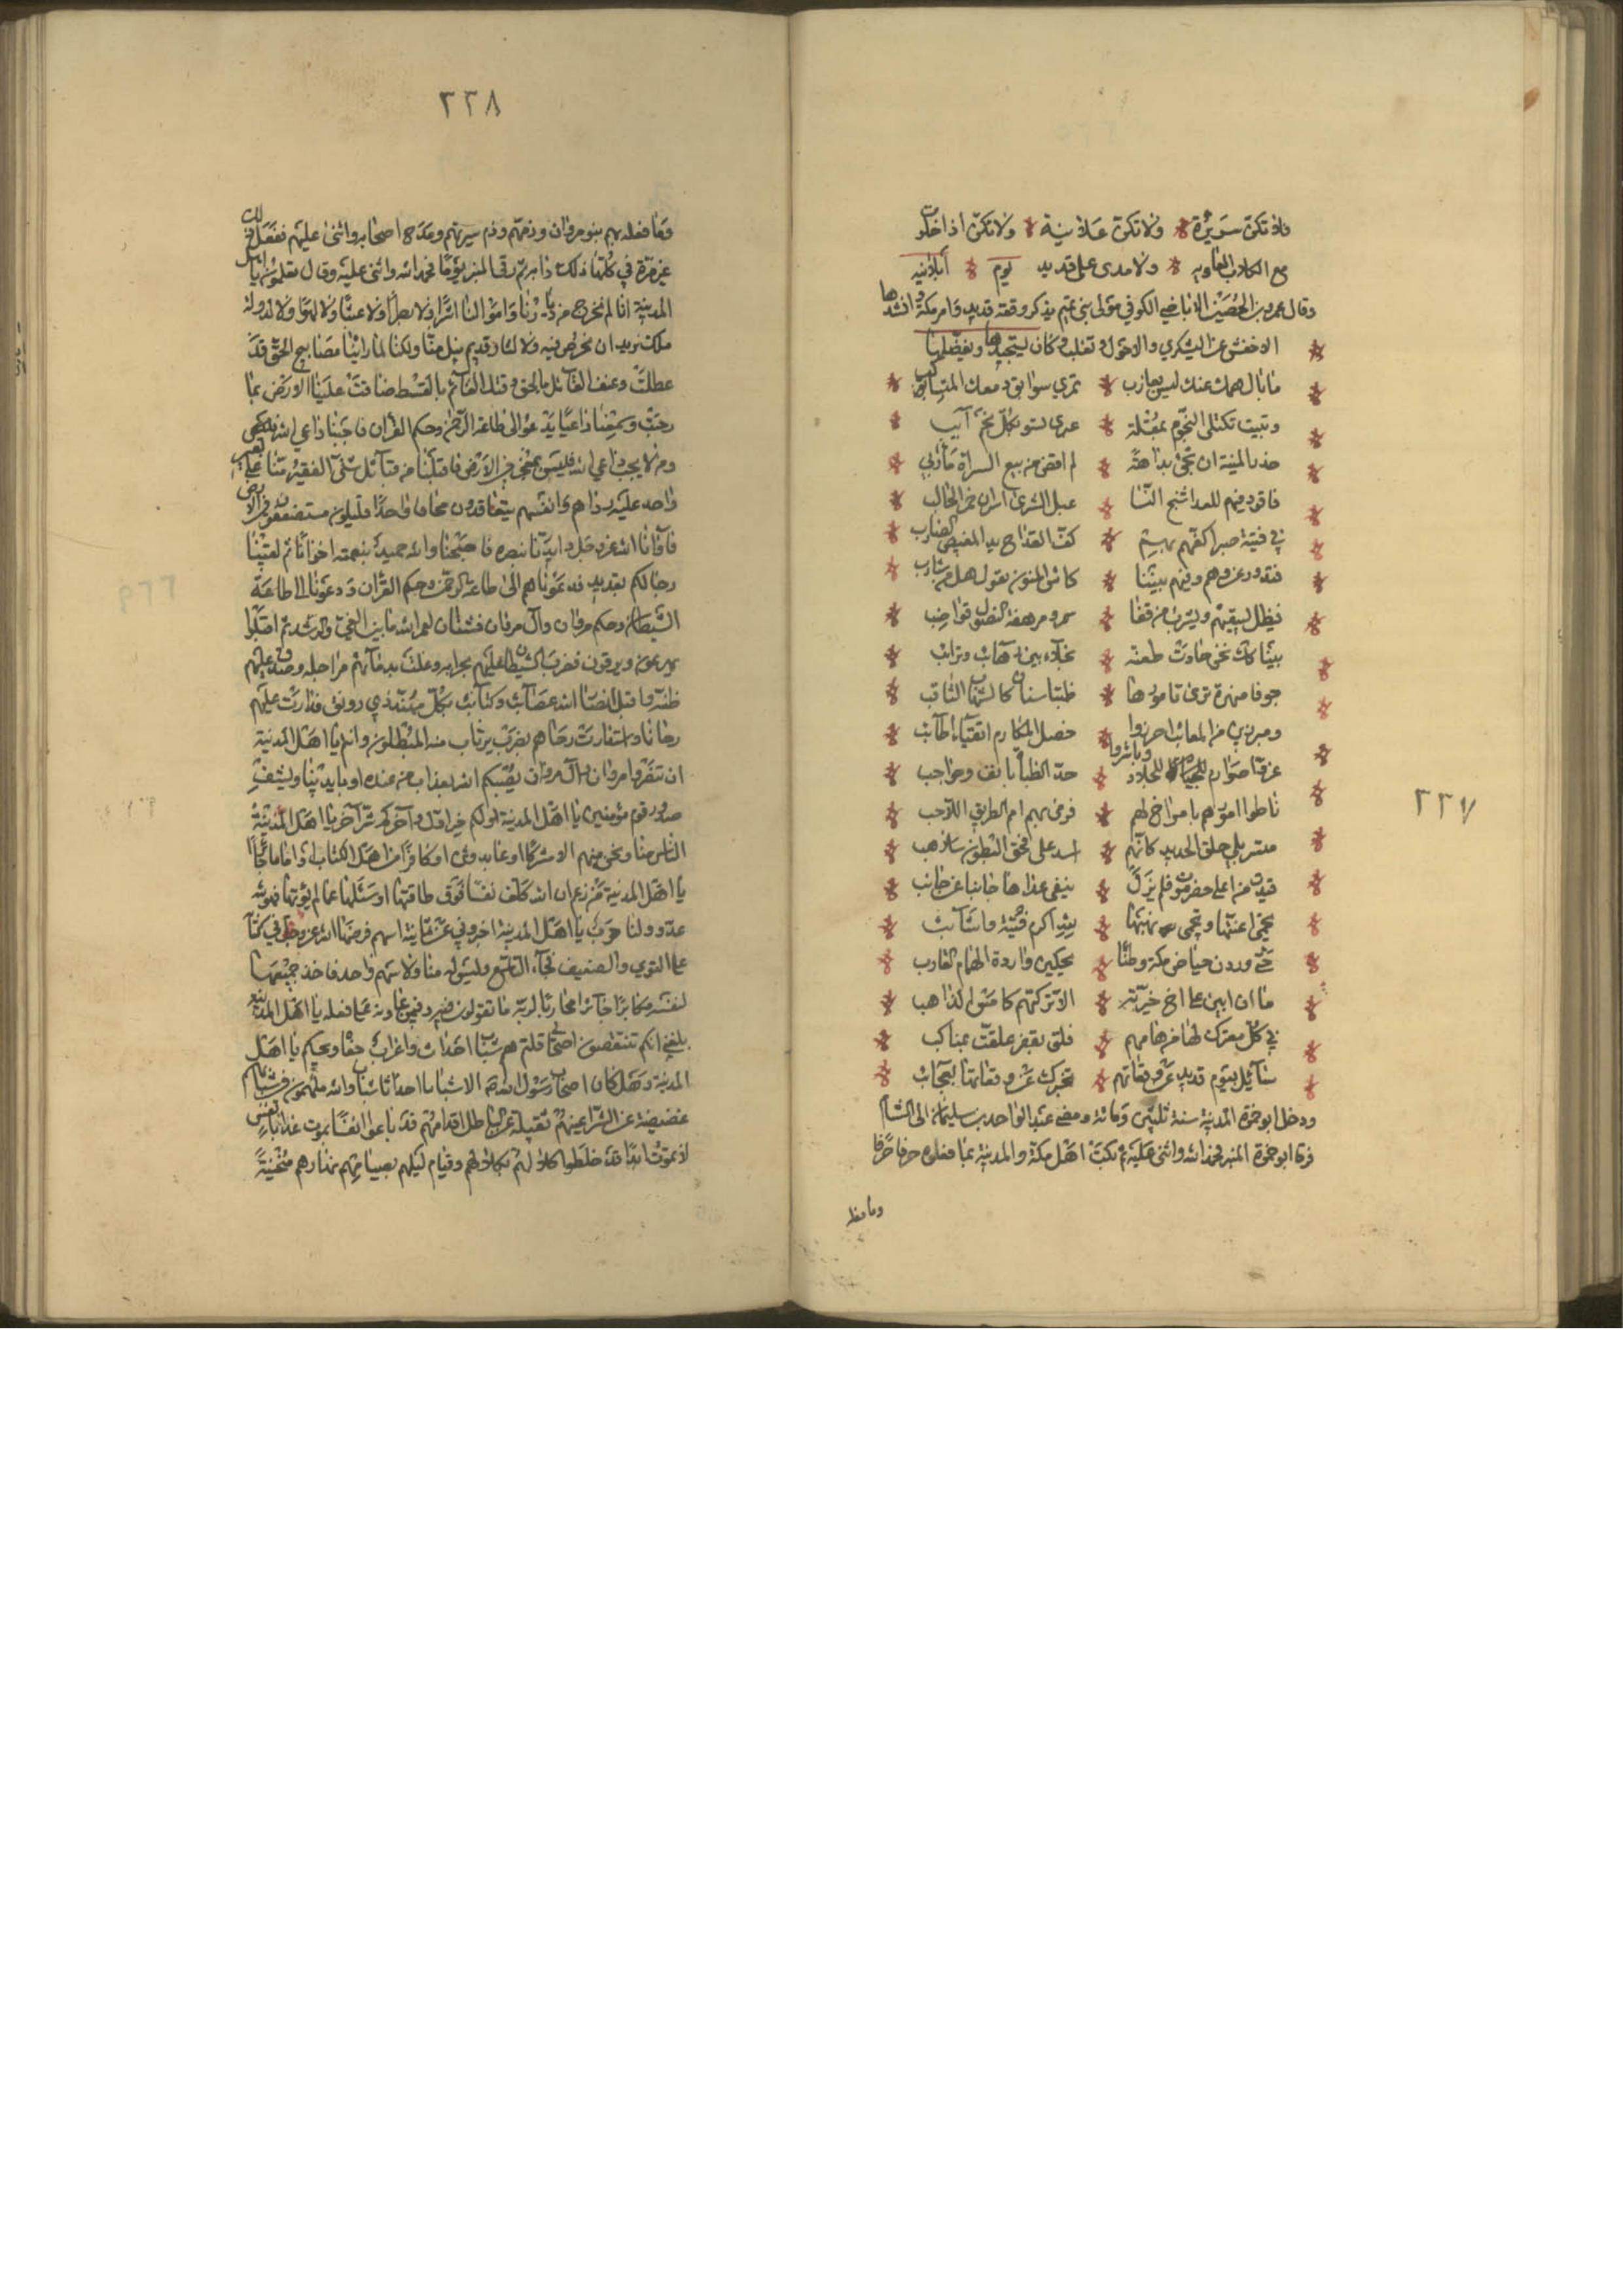 ٢٢٧
مع الكاذب العاويه ولا مدى على قديد يوم أبلانيه
وقال عمرو بن الحصين الاباضي الكوفي مولى بني تميم يذكر وقعة قديد وامر مكة وانشدها
الاخفش عن اليشكري والاحول وثعلب وكان يستجيدها ويفضلها
ما بال همك عنك ليس بعازب تمري سوابق دمعك المتساكب
وتبيت تكتلئ النجوم بمقلة عبرى بكل نجم آيب
حذر المنية ان تجئ بداهة لم اقض من بيع السراة مآربي
فاقود فيهم للعدا شنج النسا عبل الشوى
في فتية صبر كف القداح يد المفيض الضارب
فندور نحن وهم وفيهم بيننا كاس المنون تقول هل من شارب
فيظل يسقيهم ويشرب من قنا سمر ومرهفة النصول قواضب
بينا كذاك نحن جادت طعنة نجلاء بين وترائب
جوفا منهرة ترى تامورها ظبتا سنان كالشهاب الثاقب
خصل المكارم اتقياء اطائب
حد الظبا بانف وحواجب
ناطوا امورهم بامر اخ لهم فرمى بهم الطريق اللاحب
متسربلي حلق الحديد كانهم اسد على لحق البطون سلاهب
قيدت من اعلى حضرموت فلم تزل تنفي عداها جانبا عن جانب
تحمى اعنتها وتحوي نهبها لله اكرم فتية واشائب
حتى وردن حياض مكة قطنا يحكين واردة اليمام القارب
ما ان اتين على اخي جبرية الا تركتهم كامس الذاهب
في كل معترك لها من هامهم فلق علقت بمناكب
سائل بيوم قديد عن وقعاتها تخبرك عن وقعاتها بعجائب
ودخل ابو حمزة المدينة سنة ثلثين ومائة ومضى عبد الواحد بن سليمان الى الشام
فرقا ابو حمزة المنبر فحمد الله واثنى عليه اهل مكة والمدينة بما فعلوه حرفا حرفا
وما فعله
٢٢٨
وما فعله بهم بنو مروان وذمهم وذم سيرتهم ومدح اصحابه واثنى عليهم ففعل ذلك
غير مرة في كلها ذلك دابه ثم رقا المنبر يوما فحمد الله واثنى عليه وقال تعلمون يا اهل
المدينة انا لم نخرج من ديارنا واموالنا اشرا ولا بطرا ولا عبثا ولا لهوا ولا لدولة
ملك نريد ان نخوض فيه ولا لثار قديم نيل منا ولكنا لما راينا مصابيح الحق قد
عطلت وعنف القائل بالحق وقتل القائم بالقسط ضاقت علينا الارض بما
رحبت وسمعنا داعيا يدعو الى طاعة الرحمن وحكم القرآن فاجبنا داعي الله
ومن لا يجب داعي الله فليس بمعجز في الارض فاقبلنا من قبائل شتى النفر منا على بعير
واحد عليه زادهم وانفسهم يتعاقدون لحافا واحدا قليلون مستضعفون في الارض
فآوانا الله عز وجل وايدنا بنصره فاصبحنا والله حميد بنعمته اخوانا ثم لقينا
رجالكم بقديد فدعوناهم الى طاعة الرحمن وحكم القرآن ودعونا الى طاعة
الشيطان وحكم مروان وآل مروان فشتان لعمر الله ما بين الغي والرشد ثم اقبلوا
يهرعون ويزفون فضرب الشيطان عليهم بجرانه وغلت بدمائهم مراجله وصدق عليهم
ظنه واقبل انصار الله عصائب وكتائب بكل مهند ذي رونق فدارت عليهم
رحانا واستدارت رحاهم بضرب يرتاب منه المبطلون وانتم يا اهل المدينة
ان تنصروا مروان وآل مروان يصبكم الله بعذاب من عنده او بايدينا ويشف
صدور قوم مؤمنين يا اهل المدينة اولكم خير اول وآخركم شر آخر يا اهل المدينة
الناس منا ونحن منهم الا مشركا او عابد وثن او كافرا من اهل الكتاب او اماما جائرا
يا اهل المدينة من زعم ان الله كلف نفسا فوق طاقتها او سئلها عما لم يؤتها فهو لله
عدو ولنا حرب يا اهل المدينة اخبروني عن ثمانية اسهم فرضها الله عز وجل في كتابه
على القوي والضعيف فجاء التاسع وليس له منا ولا سهم واحد فاخذ جميعها
لنفسه مكابرا جائرا محاربا لربه ما تقولون فيه وفيمن عاونه على فعله يا اهل المدينة
بلغني انكم تنتقصون اصحابي قلتم هم شباب احداث واعراب جفا ويحكم يا اهل
المدينة وهل كان اصحاب رسول الله الا شبابا احداثا شباب والله مكتهلون في شبابهم
غضيضة عن الشر اعينهم ثقيلة عن الباطل اقدامهم قد باعوا انفسا تموت غدا بانفس
لا تموت ابدا قد خلطوا كلالهم بكلالهم وقيام ليلهم بصيام نهارهم منحنية